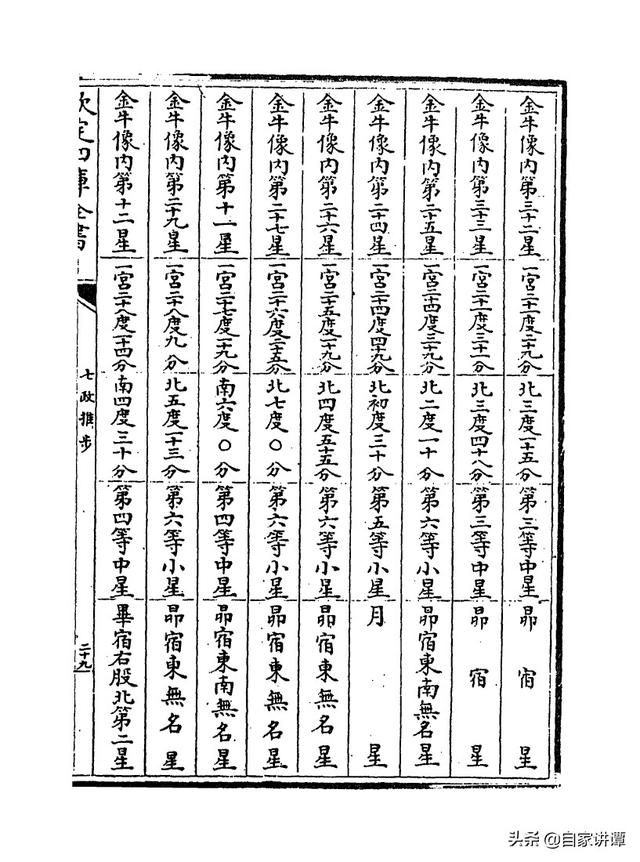 金牛像内第三十二星 一宮二十一度二十九分 北三度一十五分 第三等中星 昴宿星
金牛像内第三十三星 一宮二十一度三十一分 北三度四十八分 第三等中星 昴宿星
金牛像内第二十五星 一宮二十四度三十九分 北二度一十分 第六等小星 昴宿東南無名星
金牛像内第二十四星 一宮二十四度四十九分 北初度三十分 第五等小星 月星
金牛像内第二十六星 一宮二十五度一十九分 北四度五十五分 第六等小星 昴宿東無名星
金牛像内第二十七星 一宮二十六度二十五分 北七度〇分 第六等小星 昴宿東無名星
金牛像内第十一星 一宮二十七度一十九分 南六度〇分 第四等中星 昴宿東南無名星
金牛像内第二十九星 一宮二十八度九分 北五度一十三分 第六等小星 昴宿東無名星
金牛像内第十二星 一宮二十八度一十四分 南四度三十分 第四等中星 畢宿右股北第二星
欽定四庫全書
七政推步
二十九
头条 @自家讲谭